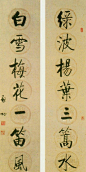 绿波杨叶三篙水
白雪梅花一笛風